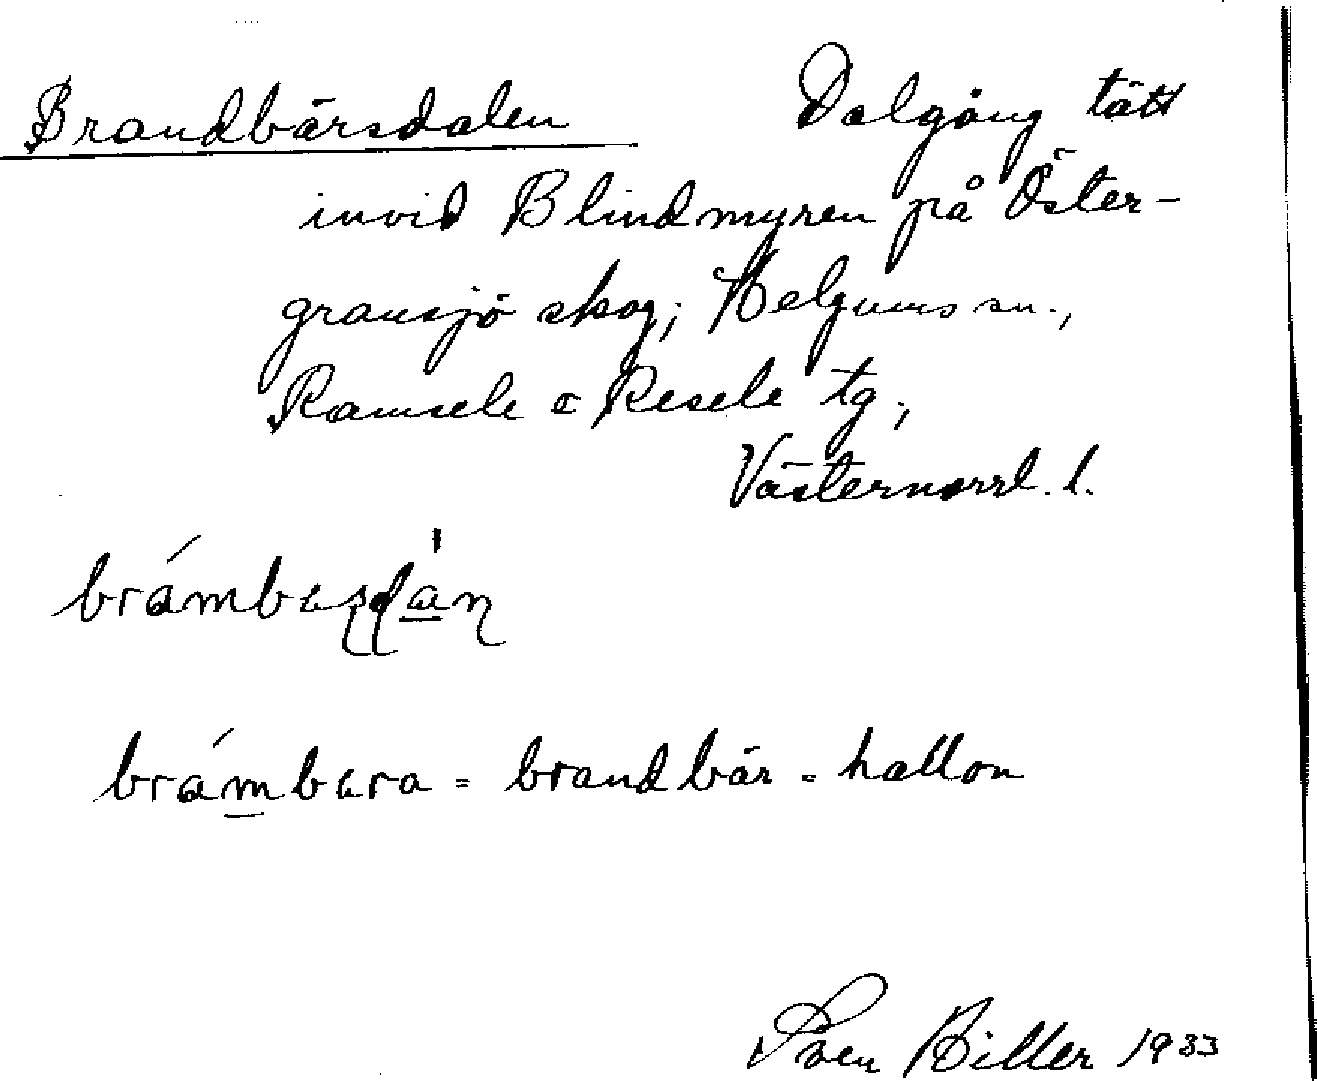 Brandbärsdalen Dalgång tätt
invid Blindmyren på Öster-
gransjö skog; Helgums sn.,
Ramsele o Resele tg.,
Västernorrl. l.
brámbara = brandbär = hallon
Sven Hiller 1933